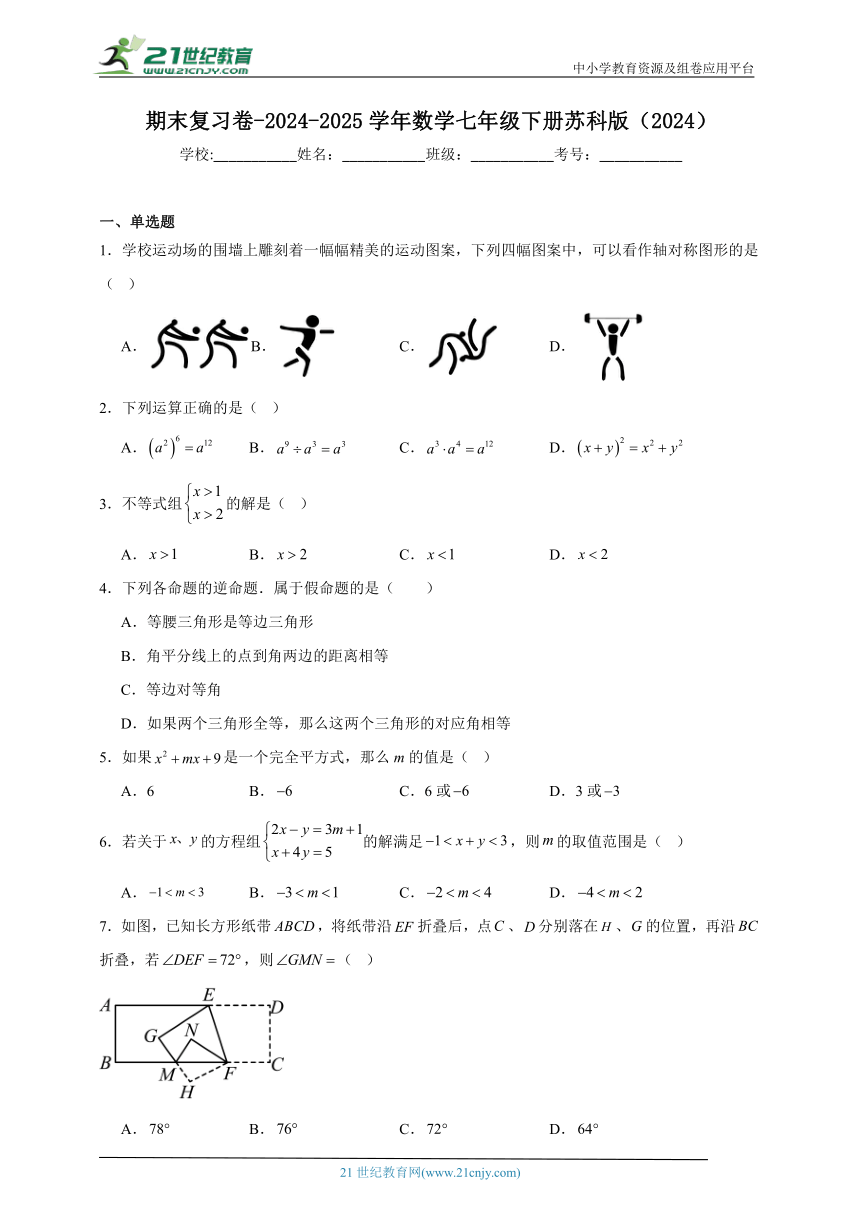 21世纪教育
WWW.21CNJY.COM
中小学教育资源及组卷应用平台
期末复习卷-2024-2025学年数学七年级下册苏科版（2024）
学校:___________姓名：___________班级：___________考号：___________
一、单选题
1．学校运动场的围墙上雕刻着一幅幅精美的运动图案，下列四幅图案中，可以看作轴对称图形的是
（ ）
A． B． C． D．
2．下列运算正确的是（ ）
A．(a²)⁶=a¹² B．a⁹÷a³=a³ C．a³·a⁴=a¹² D．(x+y)²=x²+y²
3．不等式组{x>1 x>2的解是（ ）
A．x>1 B．x>2 C．x<1 D．x<2
4．下列各命题的逆命题．属于假命题的是（ ）
A．等腰三角形是等边三角形
B．角平分线上的点到角两边的距离相等
C．等边对等角
D．如果两个三角形全等，那么这两个三角形的对应角相等
5．如果x²+mx+9是一个完全平方式，那么m的值是（ ）
A．6 B．−6 C．6或−6 D．3或−3
6．若关于x、y的方程组{2x−y=3m+1 x+4y=5的解满足−1<x+y<3，则m的取值范围是（ ）
A．−1<m<3 B．−3<m<1 C．−2<m<4 D．−4<m<2
7．如图，已知长方形纸带ABCD，将纸带沿EF折叠后，点C、D分别落在H、G的位置，再沿BC
折叠，若∠DEF=72°，则∠GMN=（ ）
A E D
G N
B M F C
H
A．78° B．76° C．72° D．64°
21世纪教育网(www.21cnjy.com)